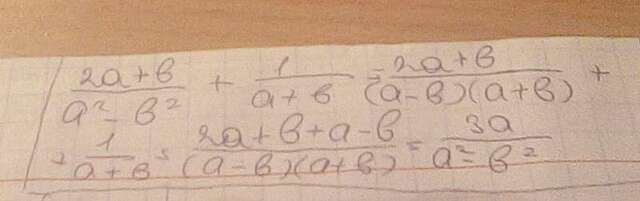 (2a+b)/(a²-b²) + 1/(a+b) = (2a+b)/((a-b)(a+b)) +
+ 1/(a+b) = (2a+b+a-b)/((a-b)(a+b)) = 3a/(a²-b²)